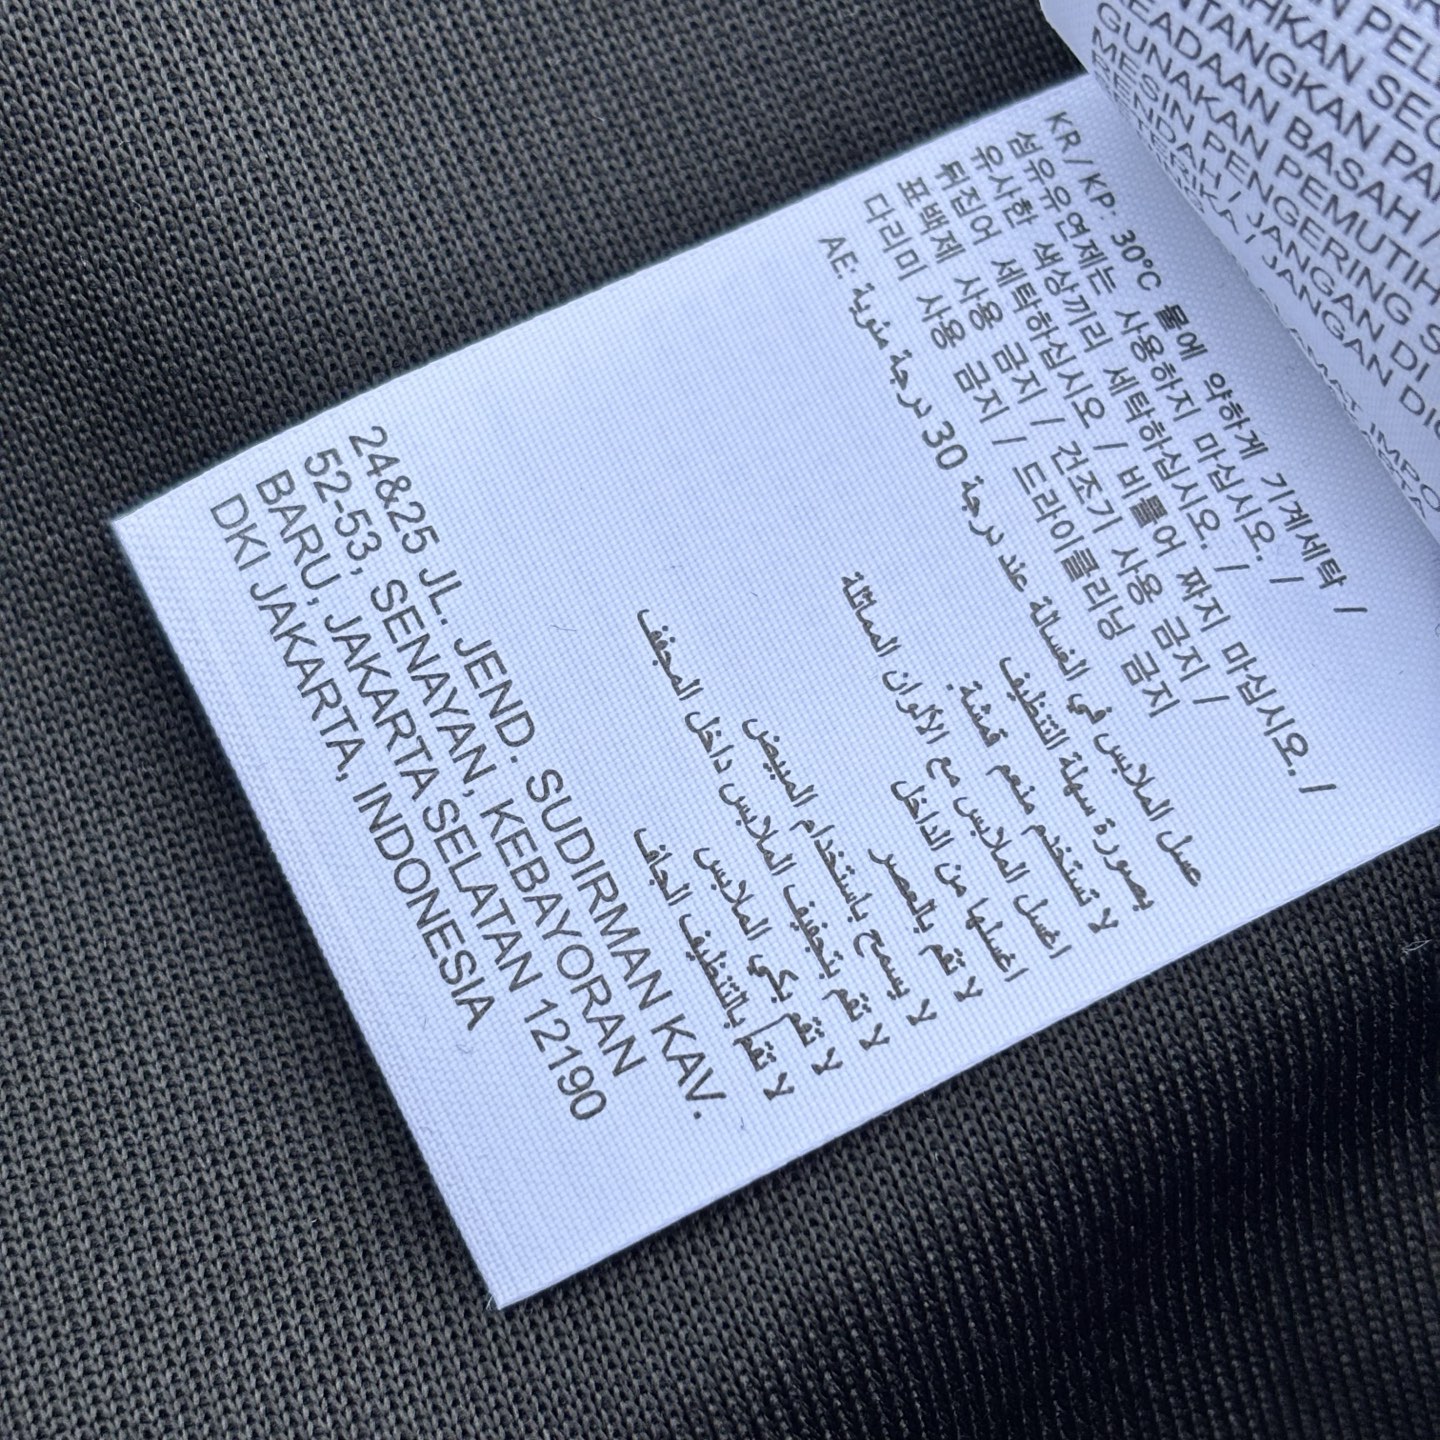 KR / KP: 30°C 물에 약하게 기계세탁 /
섬유유연제는 사용하지 마십시오. /
유사한 색상끼리 세탁하십시오. /
뒤집어 세탁하십시오 / 비틀어 짜지 마십시오. /
표백제 사용 금지 / 건조기 사용 금지 /
다리미 사용 금지 / 드라이클리닝 금지
AE: غسل الملابس في الغسالة عند درجة 30 درجة مئوية
بصورة سهلة التنظيف
لا تستخدم منعم قمشة.
اغسل الملابس مع الألوان المماثلة
اغسلها من الداخل
لا تقم بالعصر
لا يسمح باستخدام المبيض
لا تقم بتجفيف الملابس داخل المجفف
لا تقم بكي الملابس
لا تقم بالتنظيف الجاف
24&25 JL. JEND. SUDIRMAN KAV.
52-53, SENAYAN, KEBAYORAN
BARU, JAKARTA SELATAN 12190
DKI JAKARTA, INDONESIA
KEADAAN BASAH /
GUNAKAN PEMUTIH
MESIN PENGERING
RENDAH / JANGAN DI
JANGAN